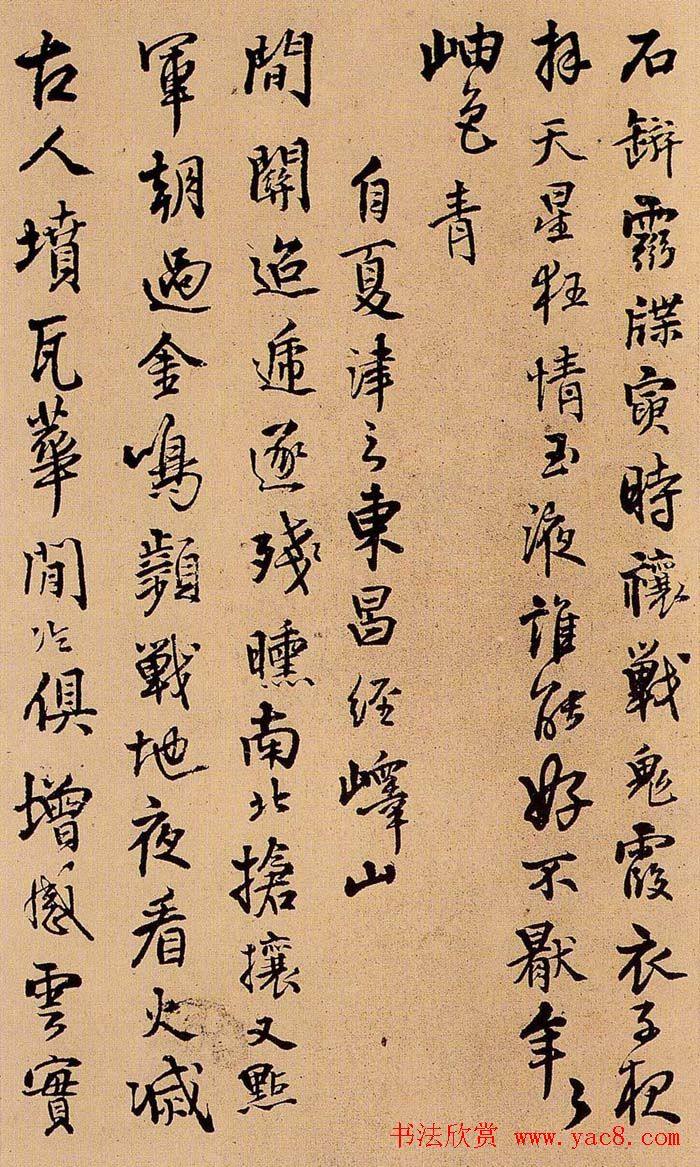 石辦霛牒寅時禳戰鬼霞衣子夜
拜天星狂情玉液誰能好不厭年々
岫色青
自夏津之東昌經嶧山
間關迢遞逐殘曛南北搶攘又點
軍朝過金鳴顰戰地夜看火滅
古人墳瓦華閒冷俱增感雲實
书法欣赏 www.yac8.com